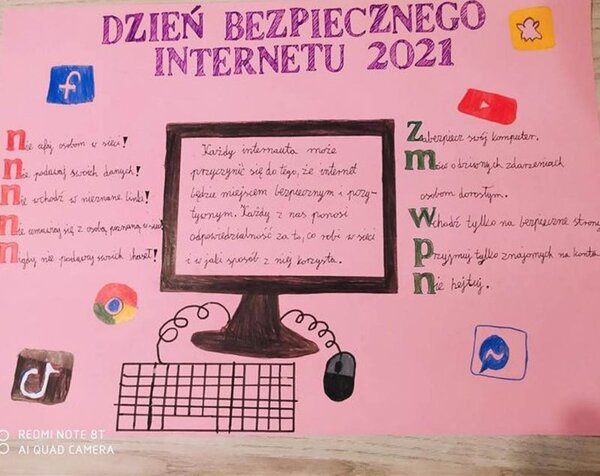 DZIEŃ BEZPIECZNEGO
INTERNETU 2021
nie ufaj osobom w sieci!
nie podawaj swoich danych!
nie wchodź w nieznane linki!
nie umawiaj się z osobą poznaną w sieci!
nigdy nie podawaj swoich haseł!
Każdy internauta może
przyczynić się do tego, że internet
będzie miejscem bezpiecznym i pozy-
tywnym. Każdy z nas ponosi
odpowiedzialność za to, co robi w sieci
i w jaki sposób z niej korzysta.
Zabezpiecz swój komputer.
mów o dziwnych zdarzeniach
osobom dorosłym.
Wchodź tylko na bezpieczne strony
Przyjmuj tylko znajomych na konta
nie hejtuj.
REDMI NOTE 8T
AI QUAD CAMERA